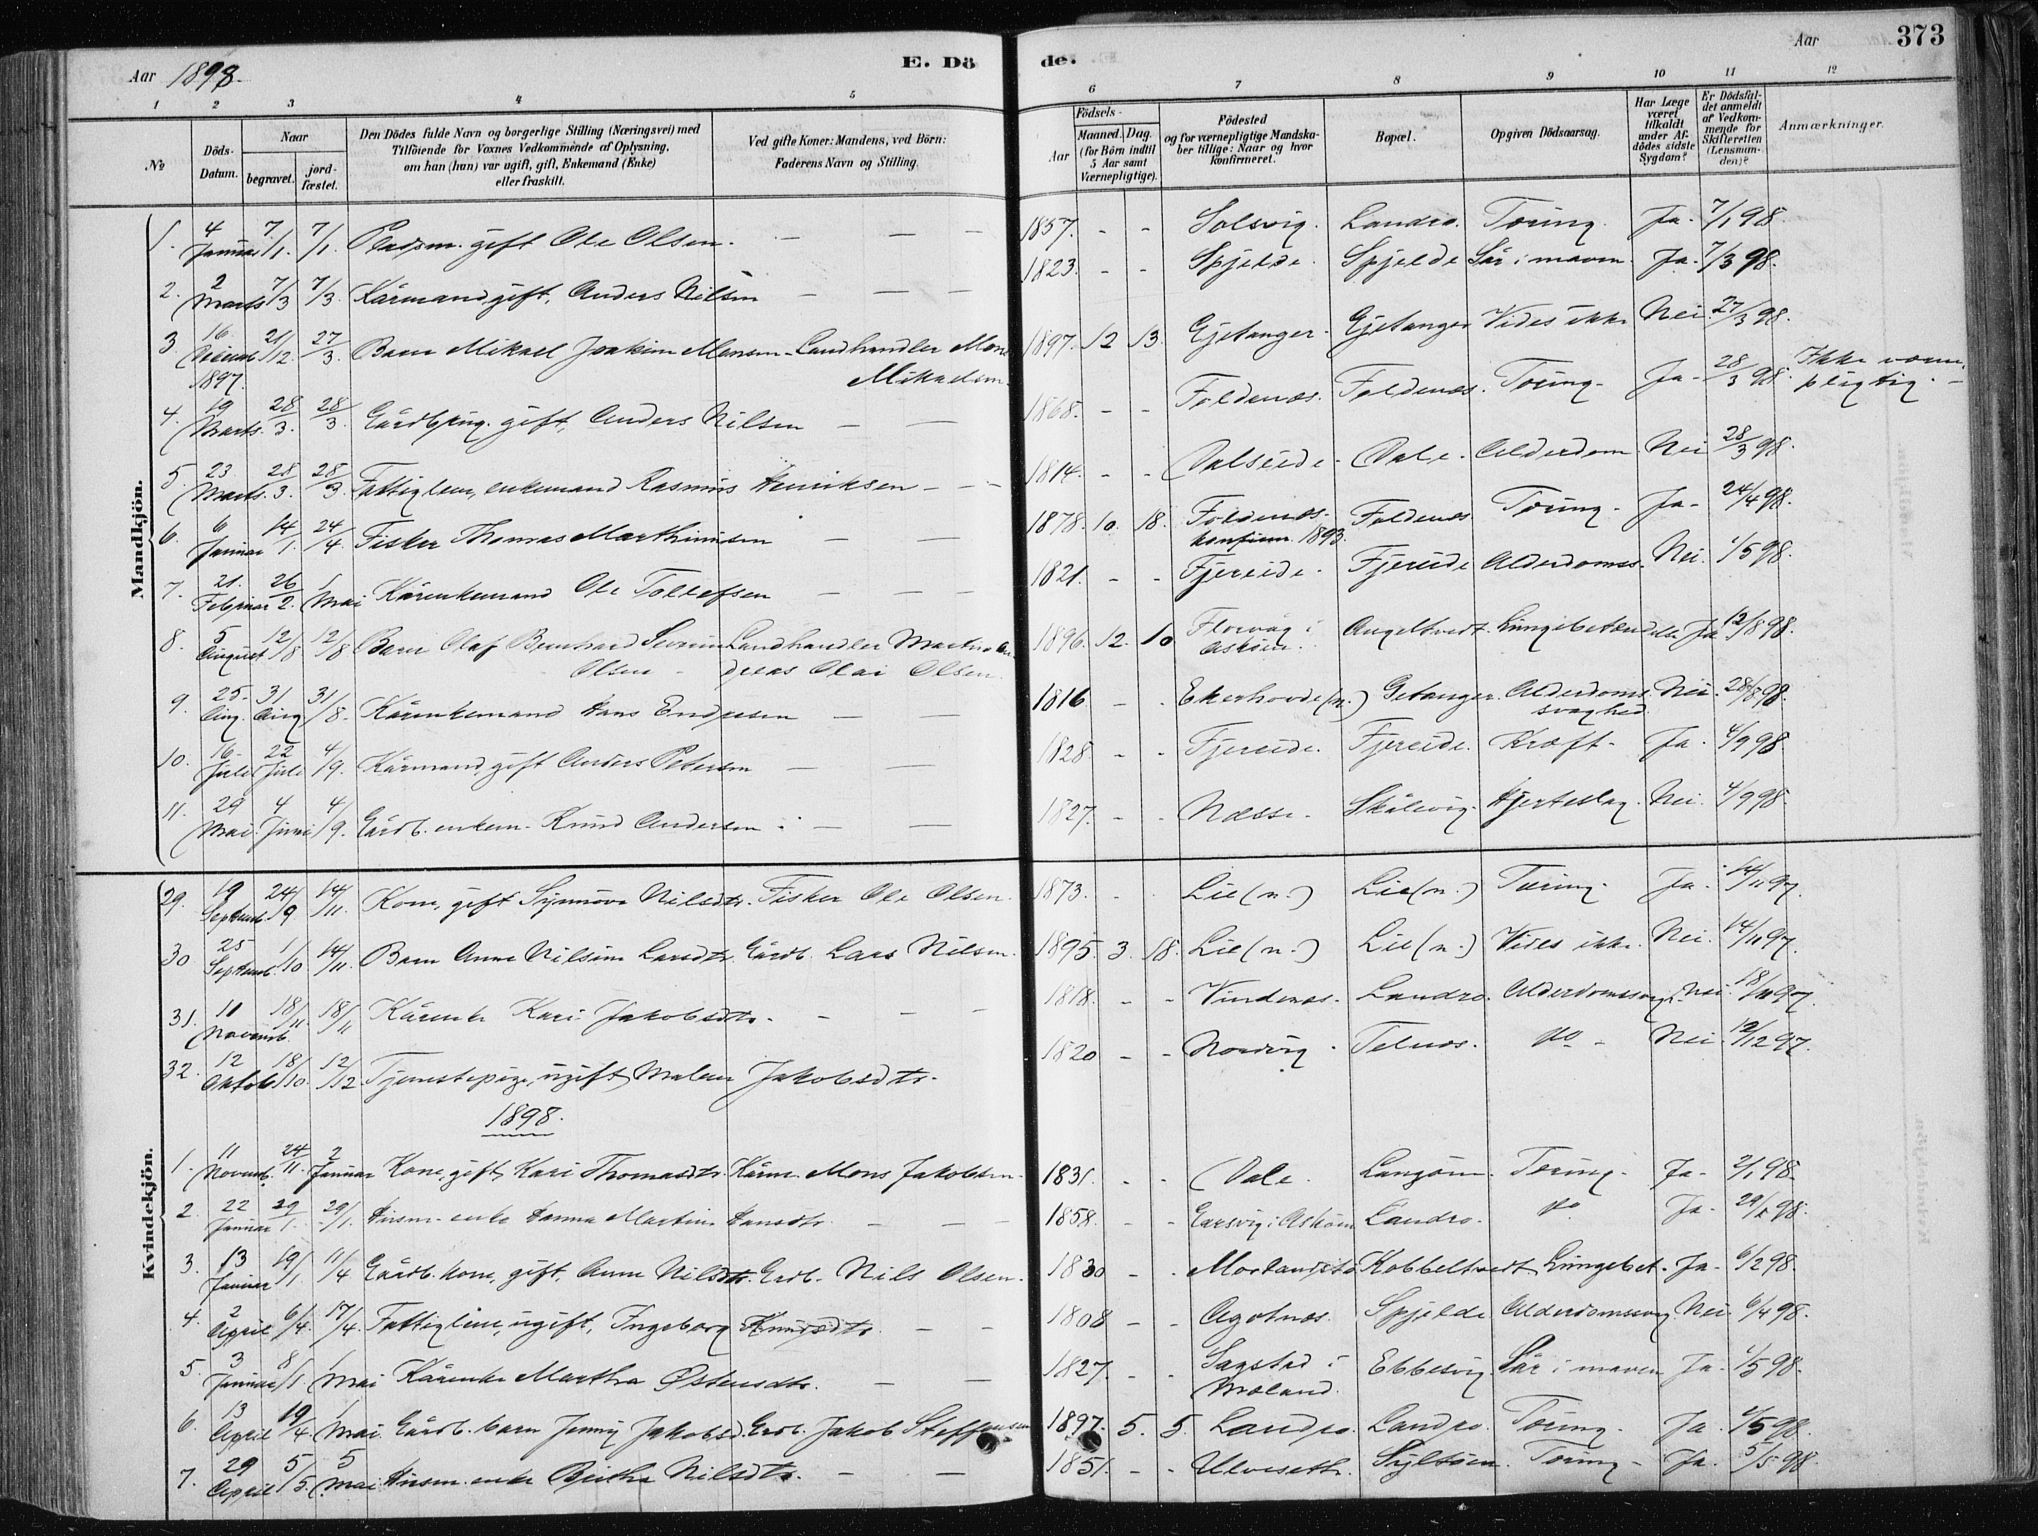 Aar 1898. E. Dö de. Aar 373
1 2 3 4 5 6 7 8 9 10 11 12
No Döds-Datum. Naar begravet. jordfæstet. Den Dödes fulde Navn og borgerlige Stilling (Næringsvei) med Tilföiende for Voxnes Vedkommende af Oplysning, om han (hun) var ugift, gift, Enkemand (Enke) eller fraskilt. Ved gifte Koner: Mandens, ved Börn: Faderens Navn og Stilling. Födsels- Aar Maaned. Dag. (for Börn indtil 5 Aar samt Værnepligtige). Födested og for værnepligtige Mandskaber tillige: Naar og hvor konfirmeret. Bopæl. Opgiven Dödsaarsag. Har Læge været tilkaldt under Afdödes sidste Sygdom? Er Dödsfaldet anmeldt af Vedkommende for Skifteretten (Lensmanden)? Anmærkninger.
Mandkjön.
1. 4 Januar 7/1. 7/1. gift Ole Olsen. — — — 1857. - - Solsvig. Landro. Tæring. Ja. 7/1 98.
2. 2 Marts 7/3 7/3. Kårmand gift, Anders Nilsen — — — 1823. - - Spjelde. Spjelde Sår i maven. Ja. 7/3 98.
3. 16 Decemb 1897. 21/12. 27/3. Barn Mikael Joakim Monsen - Landhandler Mons Mikaelsen. 1897. 12 13. Gjetanger. Gjetanger Vides ikke Nei. 27/3 98.
4. 19 Marts. 28/3. 28/3. Gårdbrug. gift, Anders Nilsen — — 1868. - - Foldenæs. Foldenæs. Tæring. Ja - 28/3 98. Ikke værnepligtig. —
5. 23 Marts. 28/3. 28/3. Fattiglem, enkemand Rasmus Henriksen - - - 1814. - - Valseide. Vale. Alderdom Nei 28/3 98.
6. 6 Januar 14/1. 24/4. Fisker Thomas Marthinusen — — 1878. 10. 18. Foldenæs. konfirm. 1893. Foldenæs Tæring. Ja - 24/4 98.
7. 21. Februar 26/2. 1 Mai Kårenkemand Ole Tollefsen — — — 1821. - - Fjereide. Fjereide Alderdomss. Nei. 1/5 98.
8. 5 August 12/8 12/8 Barn Olaf Bernhard Severin Olsen - Landhandler Martin Andreas Olai Olsen 1896. 12. 10 Florvåg i Askøen. Angeltvedt. Lungebetændelse Ja 12/8 98.
9. 25. Aug. 31 Aug 31/8. Kårenkemand Hans Endresen — — 1816 - - Ekerhovde (n.) Getanger. Alderdomssvaghed. Nei. 28/8 98.
10. 16. Juli 22 Juli 4/9. Kårmand, gift Anders Petersen — — 1828 - - Fjereide. Fjereide. Kræft. Ja. 4/9 98
11. 29 Mai. 4 Juni 4/9. Gårdb. enkem. Knud Andersen - — — 1827. - - Næsse. Skålevig. Hjerteslag. Nei. 4/9 98.
Kvindekjön.
29. 19 Septemb. 24/9 14/11. Kone, gift Synnøve Nilsdtr. Fisker Ole Olsen. 1873. - - Lie (n.) Lie (n.) Tæring. Ja. 14/11 97.
30. 25 Septemb. 1/10 14/11. Barn Anne Nilsine Larsdtr. Gårdb. Lars Nilsen. 1895. 3. 18. Lie (n.) Lie (n.) Vides ikke. Nei. 14/11 97.
31. 10 Novemb. 18/11. 18/11 Kårenke Kari Jakobsdtr. - - - 1818. - - Vindenæs. Landro. Alderdomssvag. Nei. 18/11 97.
32. 12 Oktob 18/10. 12/12 Tjenestepige, ugift Malene Jakobsdtr. 1820 - - Nordvig. Telnæs. Do - Nei. 12/12 97.
1898.
1. 11 Novemb. 24/11. 2 Januar Kone, gift, Kari Thomasdtr. Kårm. Mons Jakobsen. 1831. - - Vale. Langøen. Tæring. Ja - 2/1 98.
2. 22 Januar 29/1. 29/1. Husm. enke Hanna Martine Hansdtr. — — — 1858. - - Garsvig i Askøen Landro. Do Ja - 29/1 98.
3. 13 Januar 19/1. 11/4 Gårdb. kone, gift, Anne Nilsdtr. Grdb. Nils Olsen. 1830 - - Morlandstø Kobbeltvedt Lungebet. Ja. 6/2 98.
4. 2 April 6/4. 17/4. Fattiglem, ugift, Ingeborg Knudsdtr. — — 1808 - - Agotnæs. Spjelde Alderdomssvag Nei 6/4 98.
5. 3 Januar 8/1. 1 Mai Kårenke Martha Østensdtr. — — 1827. - - Sagstad i Mæland. Ebbesvig. Sår i maven Ja. 1/5 98.
6. 13 April 19/4. 1 Mai. Gårdb. barn Jenny Jakobsd. Grdb. Jakob Steffensen 1897. 5. 5. Landro. Landro. Tæring. Ja. 1/5 98.
7. 29 April 5/5. 5 Mai Husm. enke Birthe Nilsdtr. — — 1851. - - Ulveseth. Syltøen. Tæring - Ja. 5/5 98.